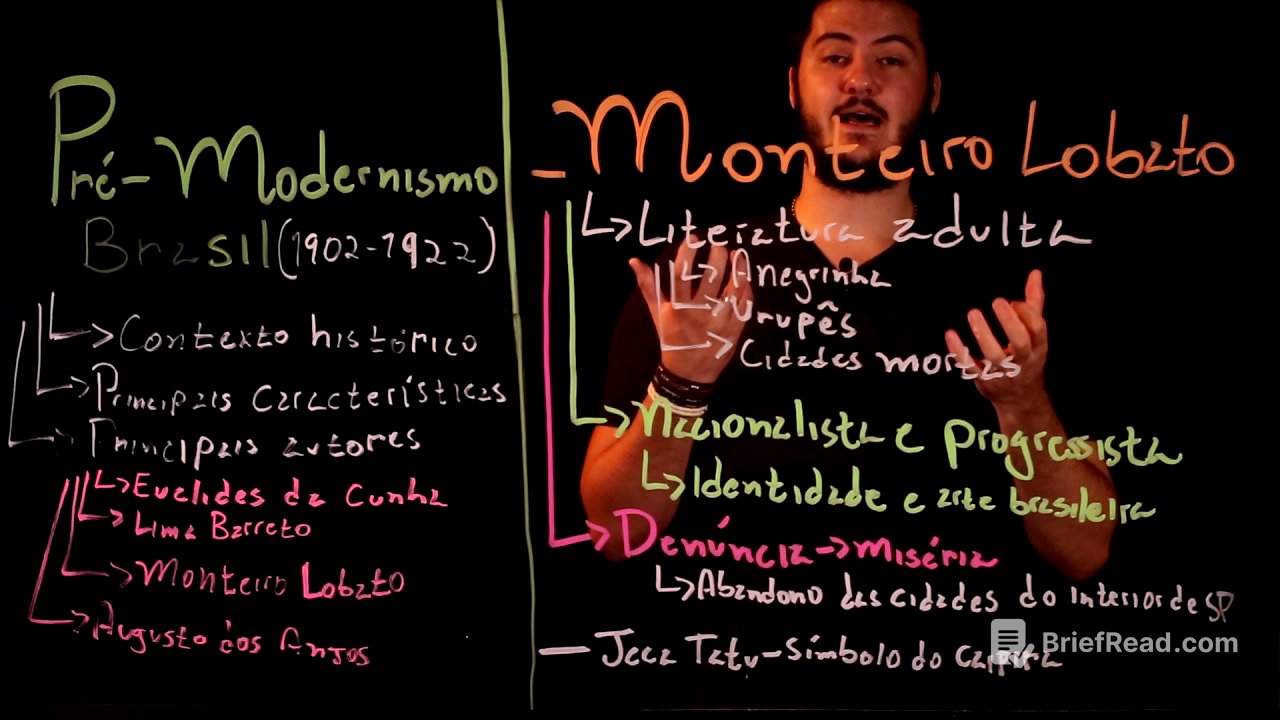 Pré-Modernismo
Brasil (1902-1922)
Contexto histórico
Principais características
Principais autores
Euclides da Cunha
Lima Barreto
Monteiro Lobato
Augusto dos Anjos
- Monteiro Lobato
Literatura adulta
A negrinha
Urupês
Cidades mortas
Nacionalista e progressista
Identidade e arte brasileira
Denúncia → miséria
Abandono das cidades do interior de SP
- Jeca Tatu - Símbolo do caipira
BriefRead.com